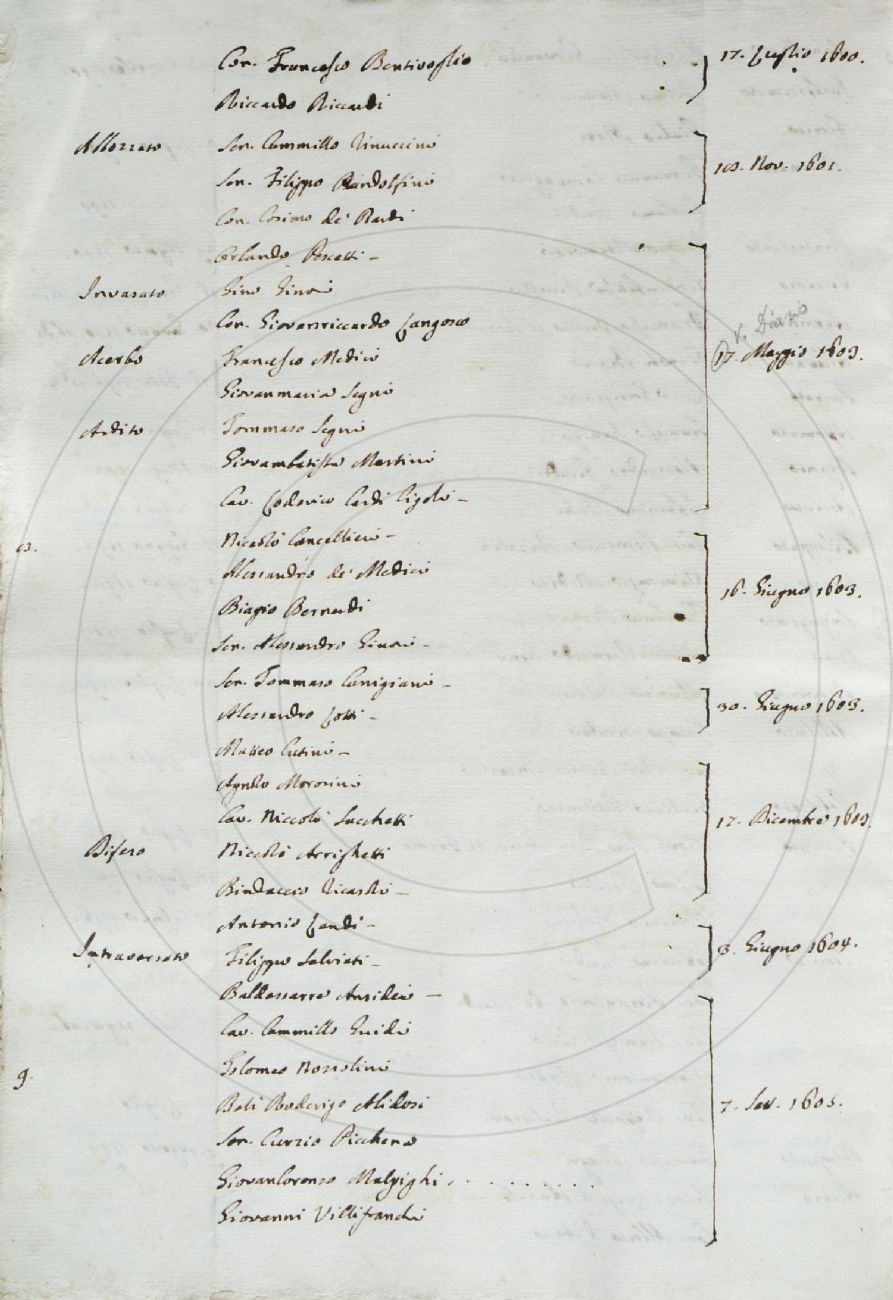 Con. Francesco Bentivoglio 17. Luglio 1600.
Riccardo Riccardi
Sen. Cammillo Rinuccini
Sen. Filippo Pandolfini 10. Nov. 1601.
Con. Cosimo de' Bardi
Orlando Pescetti -
Invasato Gino Ginori
Con. Giovanriccardo Langosco
v. Diario
Acerbo Francesco Medici 17. Maggio 1603.
Giovanmaria Segni
Ardito Tommaso Segni
Giovambatista Martini
Cav. Lodovico Cardi Cigoli -
Niccolò Cancellieri -
Alessandro de' Medici
Biagio Bernardi 16. Giugno 1603.
Sen. Alessandro Ginori -
Sen. Tommaso Canigiani -
Alessandro Lotti - 30. Giugno 1603.
Matteo Cutini -
Agnolo Morosini
Cav. Niccolò Sacchetti 17. Dicembre 1603.
Niccolò Arrighetti
Bindaccio Ricasoli -
Antonio Landi -
Intraversato Filippo Salviati - 3. Giugno 1604.
Baldessarre Ansidei -
Cav. Cammillo Guidi
Tolomeo Nozzolini
9. Balì Roderigo Alidosi 7. Set. 1605.
Sen. Curzio Picchena
Giovanlorenzo Malpighi . . . . . . . . .
Giovanni Villifranchi